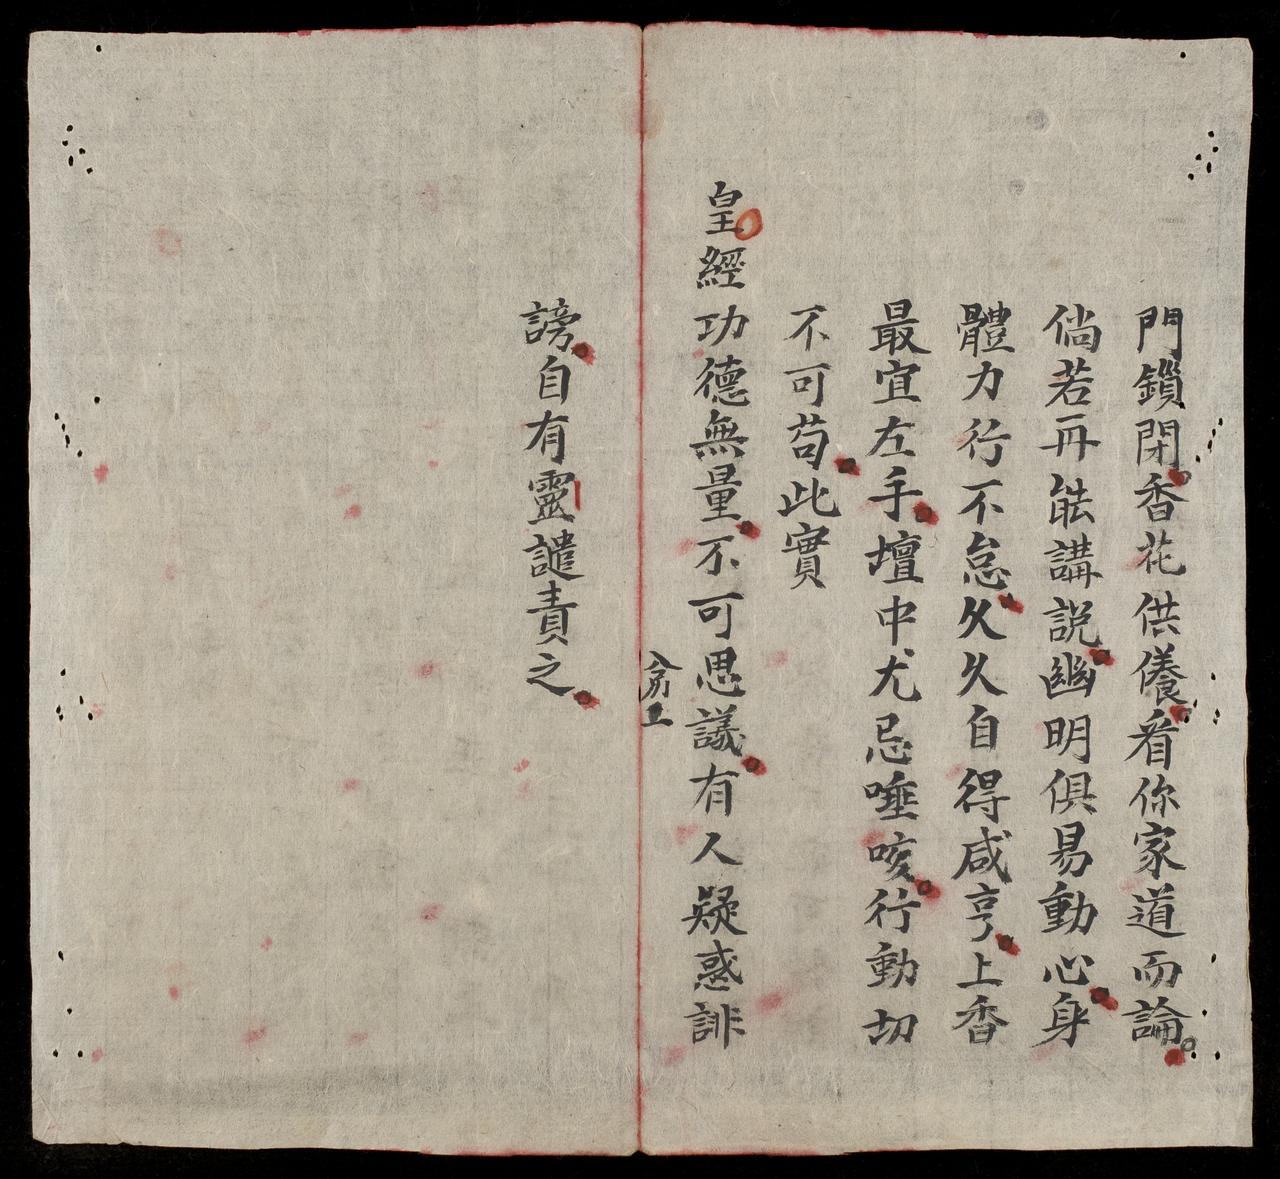 門鎖閉香花供儀看你家道而論
倘若再能講說幽明俱易動心身
體力行不怠久久自得咸亨上香
最宜左手壇中尤忌唾咳行動切
不可苟此實
皇經功德無量不可思議有人疑惑誹
謗自有靈譴責之